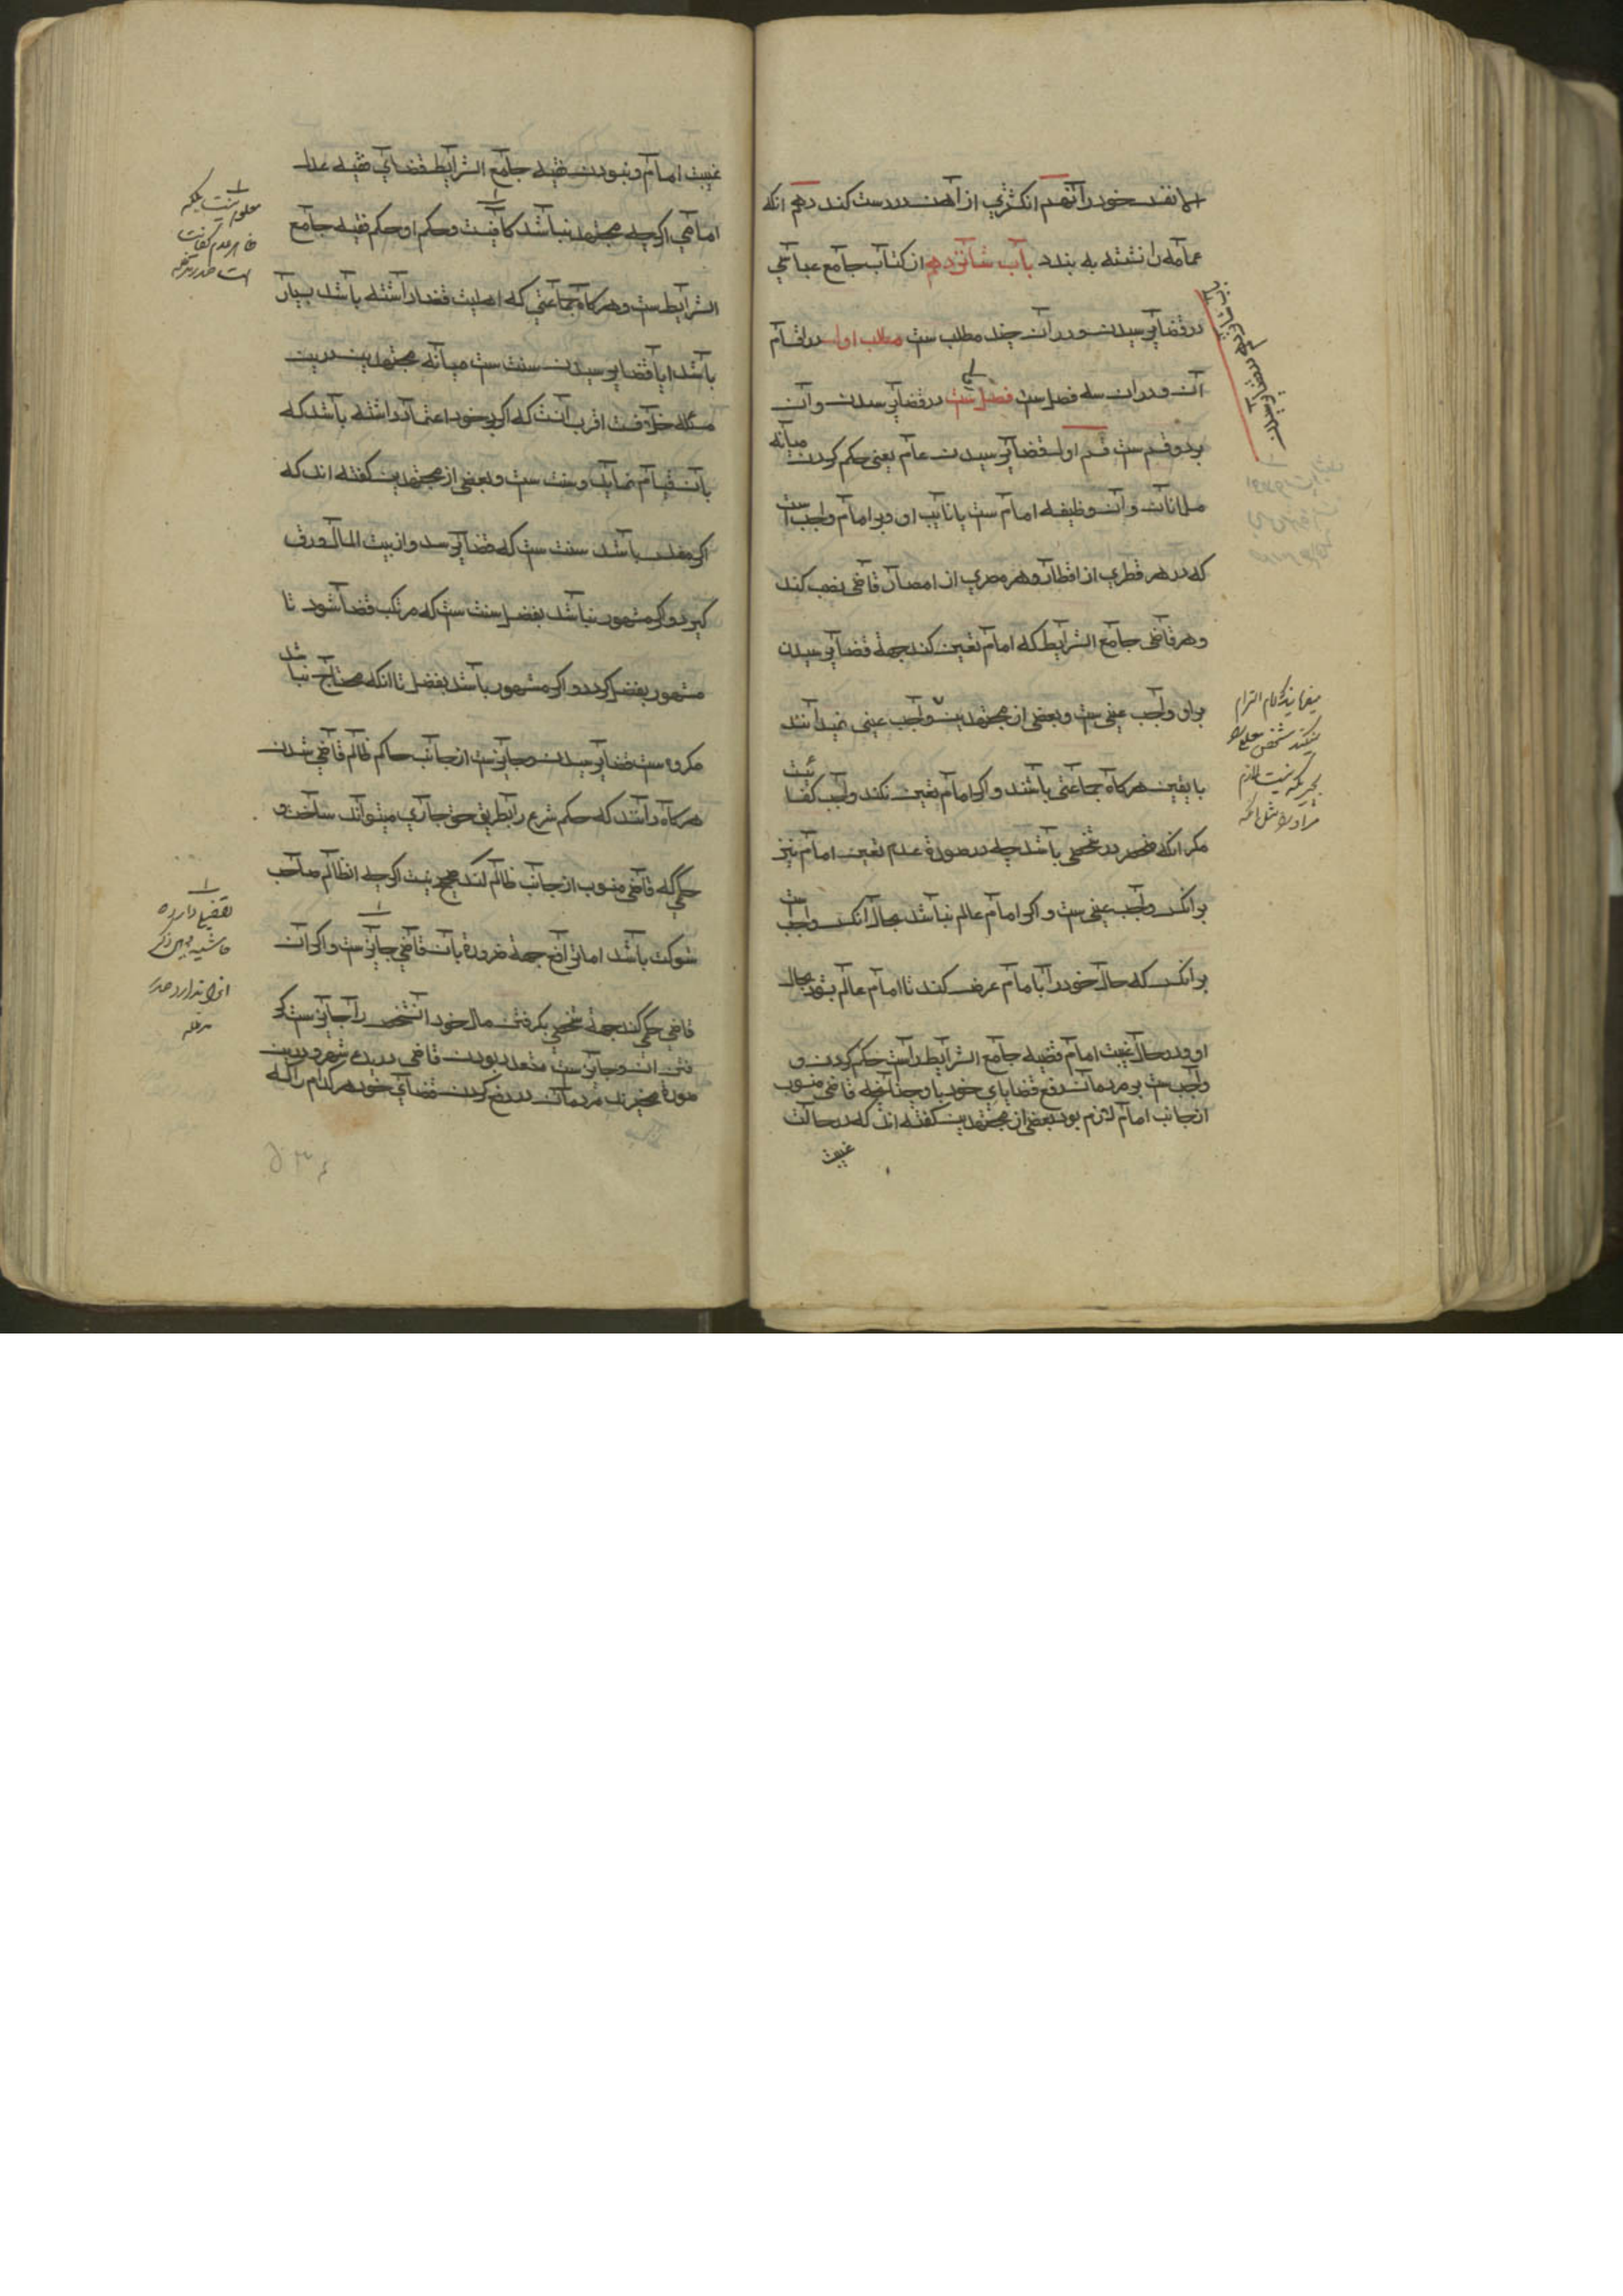 خود را نهم انگشتری از آهن درست کند دهم انکه
عمامه را نشسته به بندد باب شانزدهم از کتاب جامع عباسی
در قضا پرسیدن و در ان چند مطلب ست مطلب اول در اقسام
آن و در ان سه فصل ست فصل در قضا پرسیدن و آن
بر دو قسم ست قسم اول قضا پرسیدن عام یعنی حکم کردن میانه
و آن وظیفه امام ست یا نایب او و بر امام واجب است
که در هر قطری از اقطار و هر مصری از امصار قاضی نصب کند
و هر قاضی جامع الشرایط که امام تعین کند جهة قضا پرسیدن
بر او واجب عینی ست و بعضی از مجتهدین واجب عینی نمیدانند
با یقین هرکاه جماعتی باشند و اکر امام تعین نکند واجب کفائیست
مکر انکه منحصر در شخصی باشد چه در صورة عدم تعین امام نیز
بر انکس واجب عینی ست و اکر امام عالم نباشد بحال انکس واجب ست
بر انکس که حال خود را بامام عرض کند تا امام عالم بشود بحال
او و در حال غیبت امام فقیه جامع الشرایط راست حکم کردن و
واجب ست بر مردمان رفع قضایای خود باو چنانچه قاضی منصوب
از جانب امام لازم بود بعضی از مجتهدین کفته اند که در حالت
غیبت
باب شانزدهم در قضا پرسیدن
غیبت امام و نبودن فقیه جامع الشرایط قضای فقیه عدل
امامی اکرچه مجتهد نباشد کافیست و حکم او حکم فقیه جامع
الشرایط ست و هرکاه جماعتی که اهلیت قضا داشته باشد بسیار
باشد ایا قضا پرسیدن سنت ست میانه مجتهدین درین
مسئله خلافست اقرب آنست که اکر بر خود اعتماد داشته باشد که
بان قیام نماید سنت ست و بعضی از مجتهدین کفته اند که
اکر مفلس باشد سنت ست که قضا پرسد و از بیت المال ورق
کیرد و اکر مشهور نباشد بفضل سنت ست که مرتکب قضا شود تا
مشهور بفضل کردد و اکر مشهور باشد بفضل تا انکه محتاج نباشد
مکروه ست قضا پرسیدن و جایز ست از جانب حاکم ظالم قاضی شدن
هرکاه داند که حکم شرع را بطریق حق جاری میتواند ساخت و
حکمی که قاضی منصوب از جانب ظالم کند صحیح نیست اکرچه ان ظالم صاحب
شوکت باشد اما ترافع جهة ضرورة بان قاضی جایز ست و اکر آن
قاضی حکم کند جهة شخصی بکرفتن مال خود انشخص را جایز ست کر
فتن ان و جایز ست متعدد بودن قاضی در یک شهر و درین
صورة مخیرند مردمان در رفع کردن قضای خود هر کدام را که
معلوم نیست بلکه
ظاهر عدم کفایت
است صدر